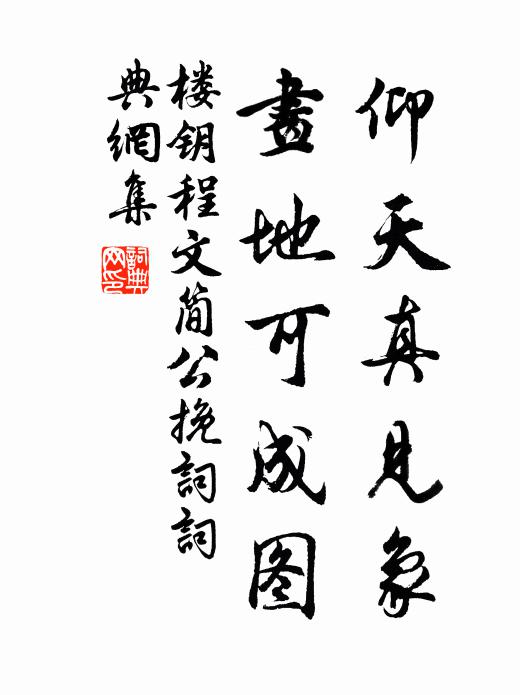 仰天真見象
畫地可成图
楼钥程文简公挽詞詞
典網集
詞典网印